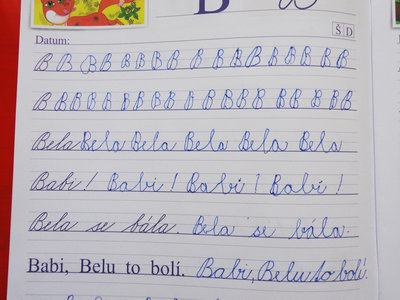 B
Š D
Datum:
B B B B B B B B B B B B B B B B
B B B B B B B B B B B B B B B B B
Bela Bela Bela Bela Bela Bela
Babi! Babi! Babi! Babi!
Bela se bála. Bela se bála.
Babi, Belu to bolí. Babi, Belu to bolí.